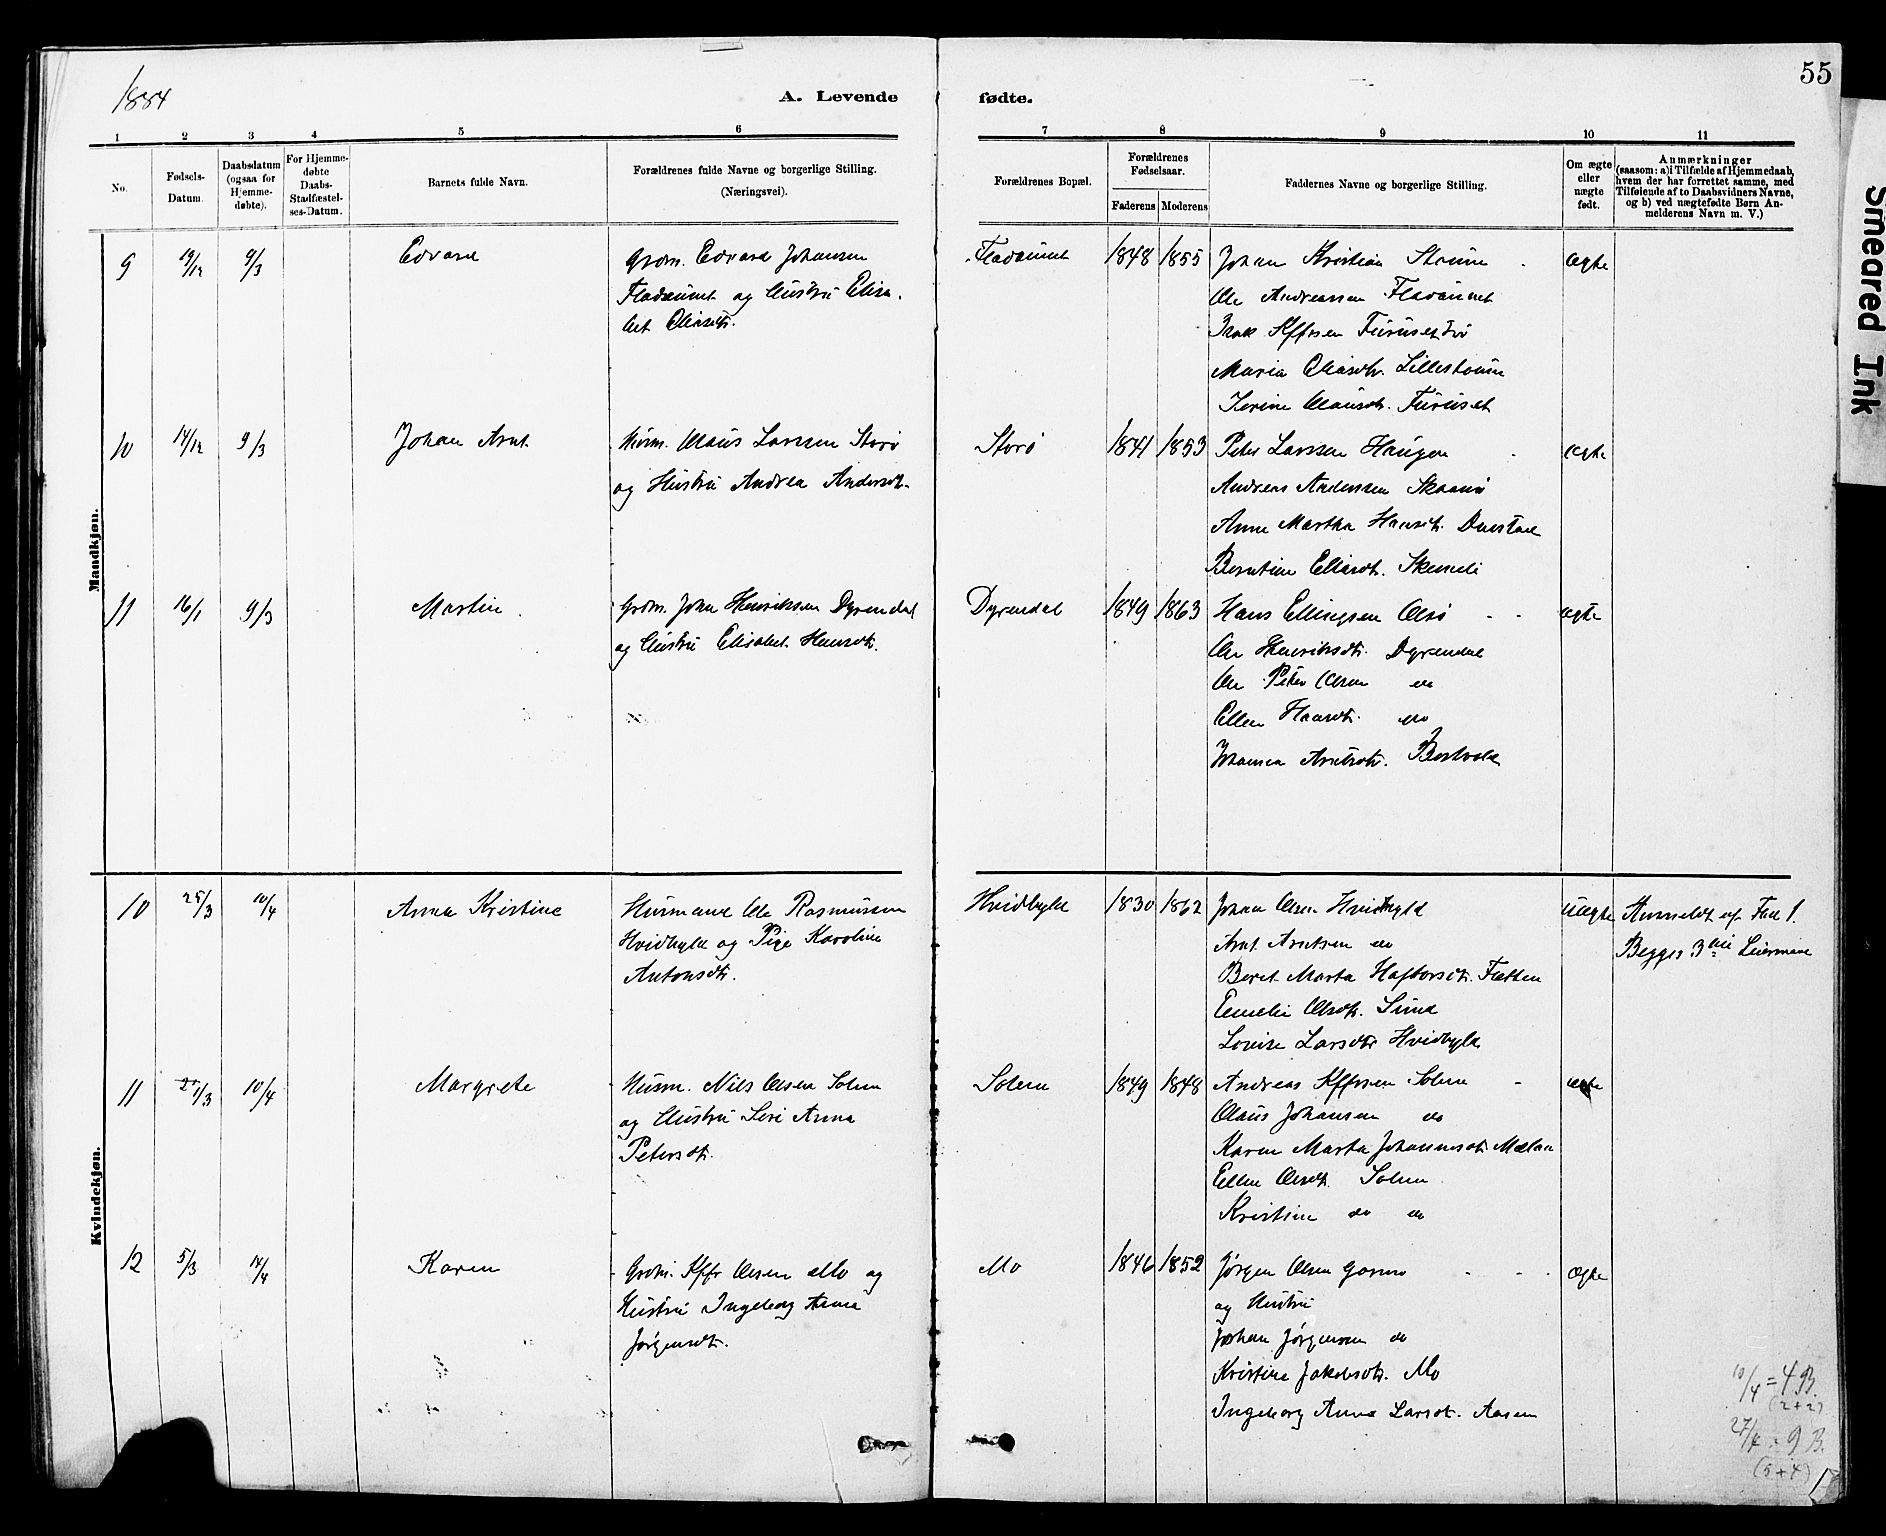 1884
A. Levende fødte.
55
1 2 3 4 5 6 7 8 9 10 11
No.
Fødsels-
Datum.
Daabsdatum
(ogsaa for
Hjemme-
døbte).
For Hjemme-
døbte
Daabs-
Stadfæstel-
ses-Datum.
Barnets fulde Navn.
Forældrenes fulde Navne og borgerlige Stilling.
(Næringsvei).
Forældrenes Bopæl.
Forældrenes
Fødselsaar.
Faderens Moderens
Faddernes Navne og borgerlige Stilling.
Om ægte
eller
nægte
født.
Anmærkninger
(saasom: a) i Tilfælde af Hjemmedaab,
hvem der har forrettet samme, med
Tilføiende af to Daabsvidners Navne,
og b) ved nægtefødte Børn An-
melderens Navn m. V.)
Mandkjøn.
9 19/12 9/3 Edvard
Grdm. Edvard Johansen
Fladaunet og Hustru Elisa-
bet Eliasdt.
Fladaunet 1848 1855
Johan Kristian
Ole Andreassen Fladaunet
Isak Kffrsen
Maria Eliasdtr.
Olausdt. Furuset
ægte
10 14/12 9/3 Johan Arnt
Husm. Olaus Larssen Storø
og Hustru Andrea Andersdt.
Storø 1841 1853
Peter Larssen Haugen
Andreas Anderssen
Anne Martha Hansdt.
Berntine Eliasdt.
ægte
11 16/1 9/3 Martin
Grdm. John Henriksen Dyrendal
og Hustru Elisabet Hansdt.
Dyrendal 1849 1863
Hans Ellingsen
Ole Henriksdt. Dyrendal
Ole Peter Olsen do
Ellen Hansdt. do
Johanna Arntsdt.
ægte
Kvindekjøn.
10 25/3 10/4 Anna Kristine
Husmand Ole Rasmussen
Hvidbyld og Pige Karoline
Antonsdt.
Hvidbyld 1830 1862
Johan Olsen Hvidbyld
Arnt Arntsen do
Beret Marta Haftorsdt. Fætten
Emelie Olsdt. Sund
Lovise Larsdtr Hvidbyld
Uægte
Anmeldt af Fad.
Begges 3die Leiermaal
11 27/3 10/4 Margrete
Husm. Nils Olsen Solem
og Hustru Seri Anna
Petersdt.
Solem 1849 1848
Andreas Kffrsen Solem
Olaus Johansen do
Karen Marta Johannesdt.
Ellen Olsdt. Solem
Kristine do do
ægte
12 5/3 14/4 Karen
Grdm. Kffr Olsen Mo og
Hustru Ingeborg Anna
Jørgensdt.
Mo 1846 1852
Jørgen Olsen
og Hustru
Johan Jørgensen do
Kristine Jakobsdt. Mo
Ingeborg Anna Larsdt. Aasen
Ægte
10/4 = 4 B.
(2+2)
27/4 = 9 B.
(5+4)
Smeared Ink